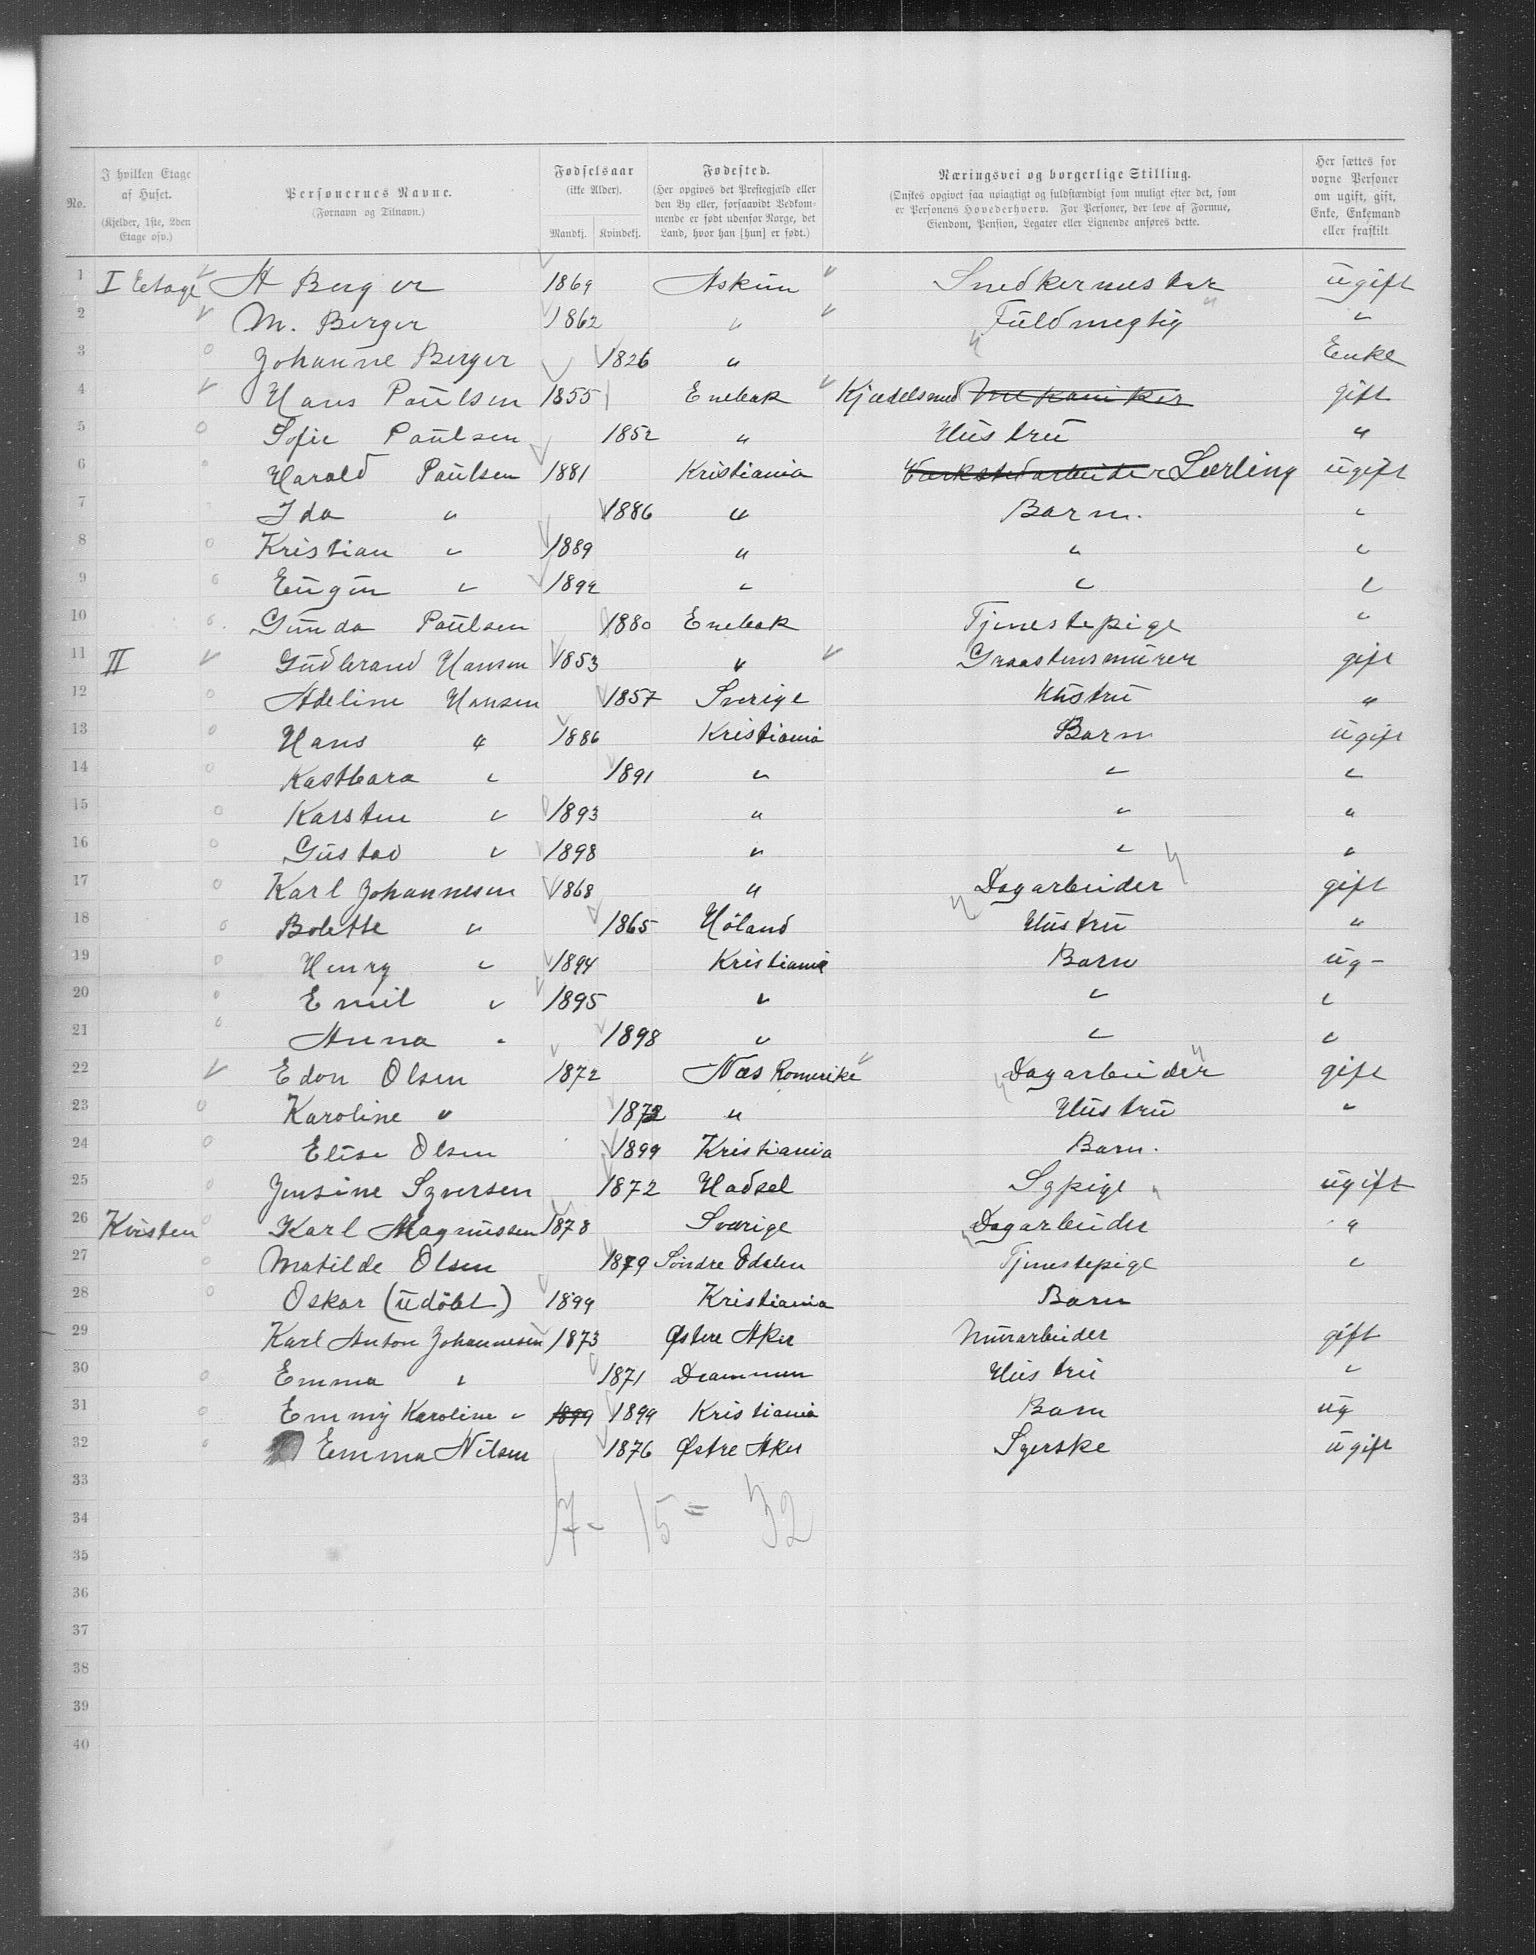 No. I hvilken Etage af Huset. (Kjelder, 1ste, 2den Etage osv.) Personernes Navne. (Fornavn og Tilnavn.) Fødselsaar (ikke Alder). Mandkj. Kvindekj. Fødested. (Her opgives det Præstegjæld eller den By eller, forsaavidt Vedkommende er født udenfor Norge, det Land, hvor han [hun] er født.) Næringsvei og borgerlige Stilling. (Ønskes opgivet saa nøiagtigt og fuldstændigt som muligt efter det, som er Personens Hovederhverv. For Personer, der leve af Formue, Eiendom, Pension, Legater eller Lignende anføres dette. Her sættes for voxne Personer om ugift, gift, Enke, Enkemand eller fraskilt
1 I Etage A Berger 1869 Askim Snedkermester ugift
2 M. Berger 1862 " Fuldmegtig "
3 Johanne Berger 1826 " Enke
4 Hans Paulsen 1855 Enebak Kjedelsmed Mekaniker gift
5 Sofie Paulsen 1852 " Hustru "
6 Harald Paulsen 1881 Kristiania Værkstedarbeider Lærling ugift
7 Ida " 1886 " Barn. "
8 Kristian " 1889 " " "
9 Eugen " 1892 " " "
10 Gunda Paulsen 1880 Enebak Tjenestepige "
11 II Gudbrand Hansen 1853 " Graastensmurer gift
12 Adeline Hansen 1857 Sverige Hustru "
13 Hans " 1886 Kristiania Barn ugift
14 Kastbara " 1891 " " "
15 Karsten " 1893 " " "
16 Gustav " 1898 " " "
17 Karl Johannesen 1868 " Dagarbeider gift
18 Bolette " 1865 Höland Hustru "
19 Henry " 1894 Kristiania Barn ug-
20 Emil " 1895 " " "
21 Anna " 1898 " " "
22 Edon Olsen 1872 Næs Romerike Dagarbeider gift
23 Karoline " 1872 " Hustru "
24 Elise Olsen 1899 Kristiania Barn.
25 Jensine Syversen 1872 Hadsel Sypige ugift
26 Kvisten Karl Magnussen 1878 Sverige Dagarbeider "
27 Matilde Olsen 1879 Söndre Odalen Tjenestepige "
28 Oskar (udöbt) 1899 Kristiania Barn
29 Karl Anton Johannesen 1873 Østre Aker Murarbeider gift
30 Emma " 1871 Drammen Hustru "
31 Emmy Karoline " 1899 1899 Kristiania Barn ug
32 Emma Nilsen 1876 Østre Aker Syerske ugift
33
34 17 - 15 = 32
35
36
37
38
39
40